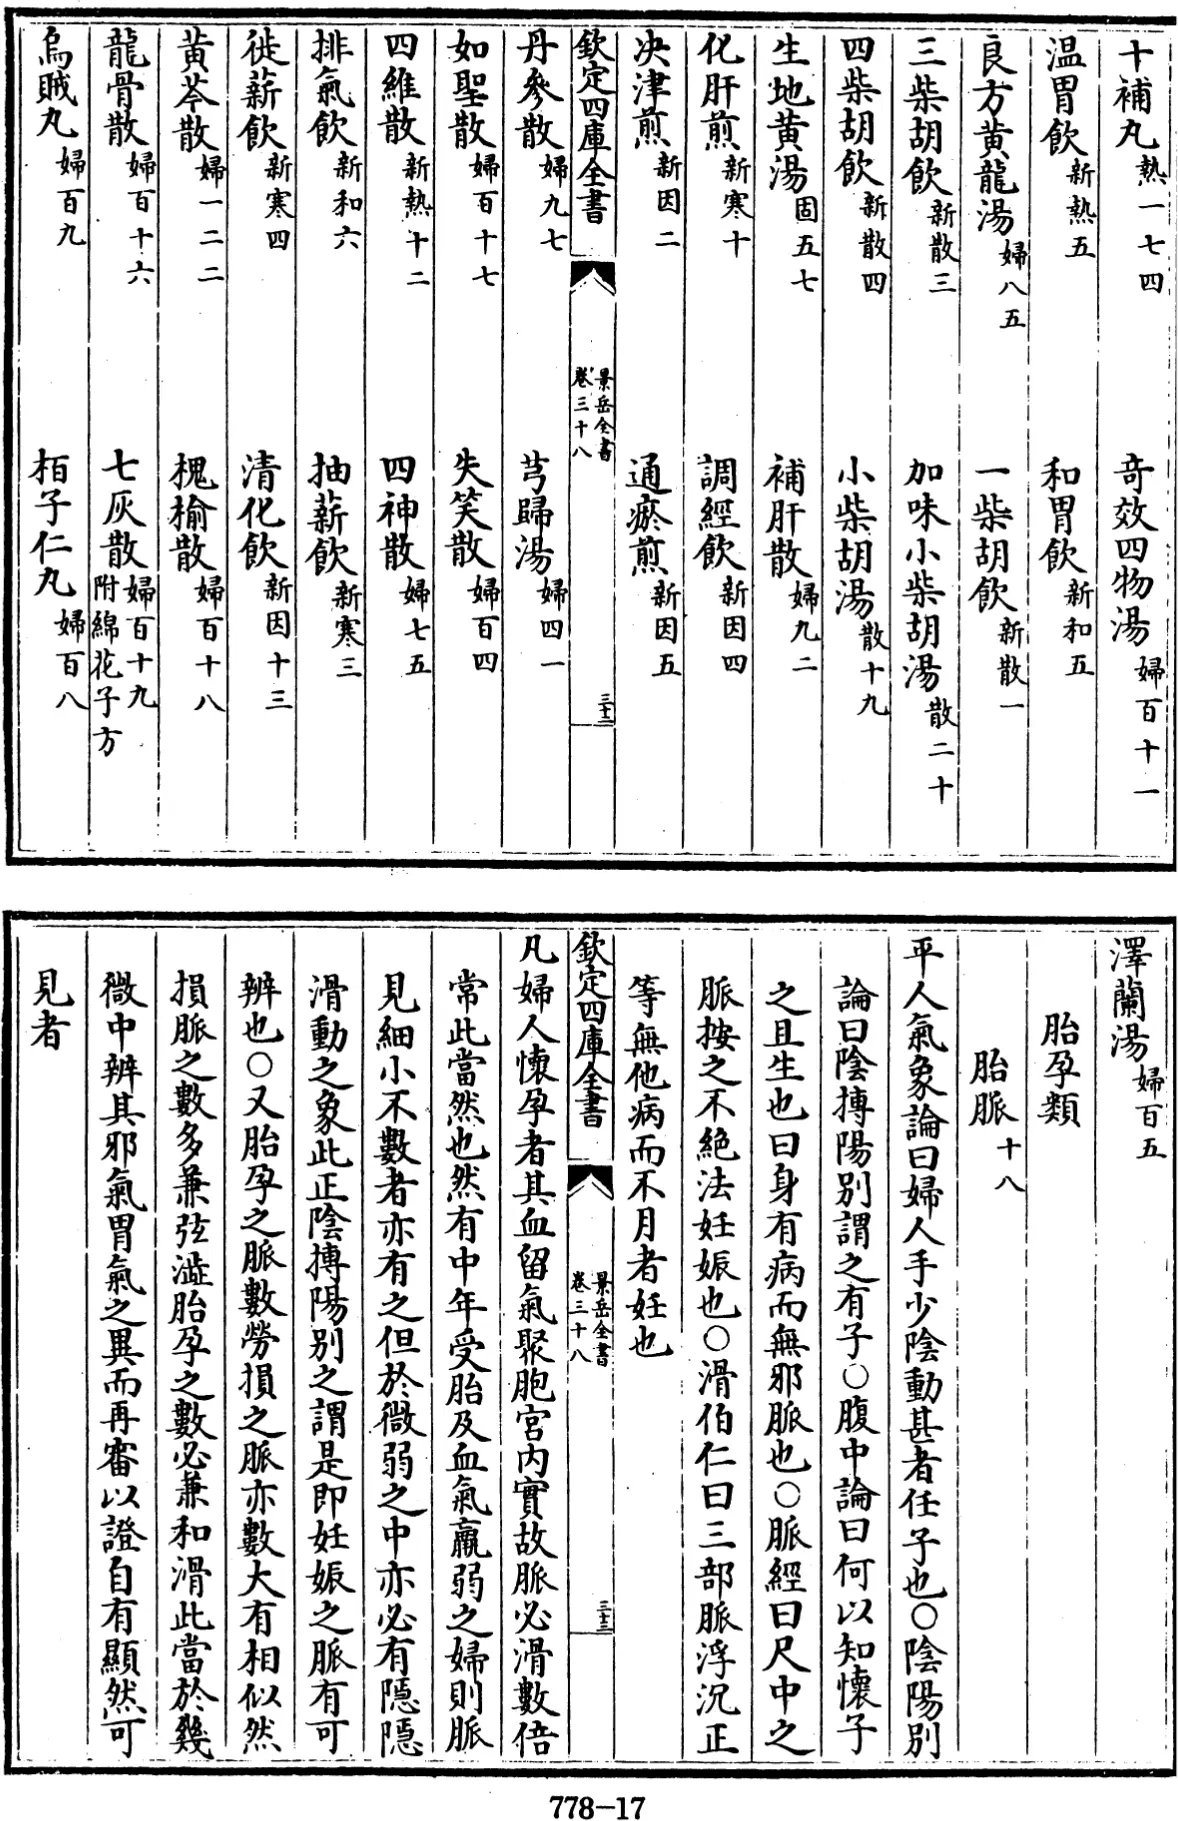 十補丸熱一七四　奇效四物湯婦百十一
温胃飲新熱五　和胃飲新和五
良方黄龍湯婦八五　一柴胡飲新散一
三柴胡飲新散三　加味小柴胡湯散二十
四柴胡飲新散四　小柴胡湯散十九
生地黄湯固五七　補肝散婦九二
化肝煎新寒十　調經飲新因四
决津煎新因二　通瘀煎新因五
欽定四庫全書　景岳全書卷三十八　三十二
丹參散婦九七　芎歸湯婦四一
如聖散婦百十七　失笑散婦百四
四維散新熱十二　四神散婦七五
排氣飲新和六　抽薪飲新寒三
徙薪飲新寒四　清化飲新因十三
黄芩散婦一二二　槐榆散婦百十八
龍骨散婦百十六　七灰散婦百十九附綿花子方
烏賊丸婦百九　栢子仁丸婦百八
澤蘭湯婦百五
胎孕類
胎脈十八
平人氣象論曰婦人手少陰動甚者任子也○陰陽别
論曰陰搏陽别謂之有子○腹中論曰何以知懷子
之且生也曰身有病而無邪脈也○脈經曰尺中之
脈按之不絶法妊娠也○滑伯仁曰三部脈浮沉正
等無他病而不月者妊也
欽定四庫全書　景岳全書卷三十八　三十三
凡婦人懷孕者其血留氣聚胞宫内實故脈必滑數倍
常此當然也然有中年受胎及血氣羸弱之婦則脈
見細小不數者亦有之但於微弱之中亦必有隱隱
滑動之象此正陰搏陽别之謂是即妊娠之脈有可
辨也○又胎孕之脈數勞損之脈亦數大有相似然
損脈之數多兼弦澁胎孕之數必兼和滑此當於幾
微中辨其邪氣胃氣之異而再審以證自有顯然可
見者
778-17